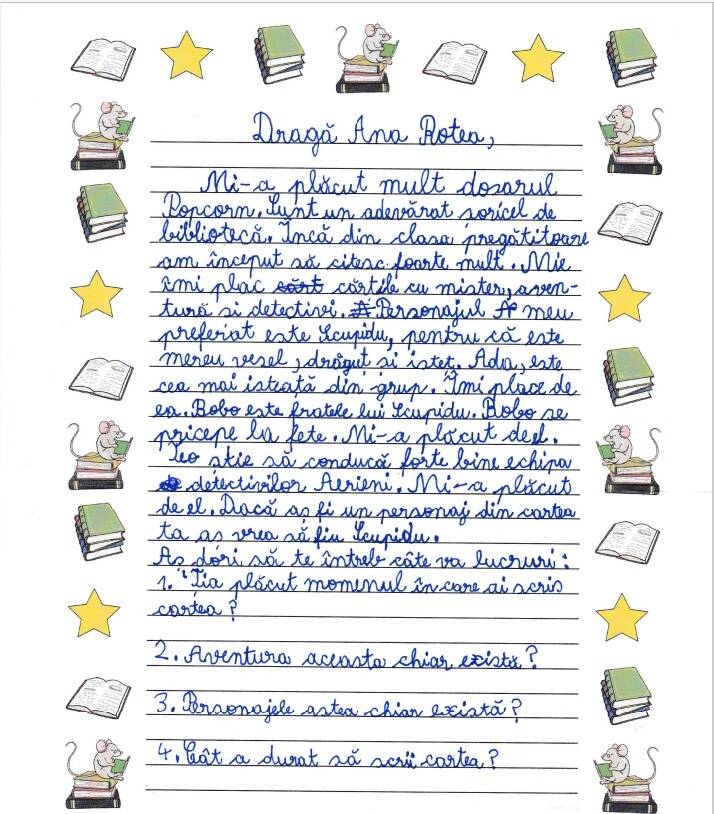 Dragă Ana Rotea,
Mi-a plăcut mult dosarul
Popcorn. Sunt un adevărat soricel de
bibliotecă. Încă din clasa pregătitoare
am început să citesc foarte mult. Mie
îmi plac cărtile cu mister, aven-
tură si detectivi. Personajul meu
preferiat este Scupidu, pentru că este
mereu vesel, drăgut si istet. Ada, este
cea mai isteată din grup. Îmi place de
ea. Bobo este fratele lui Scupidu. Bobo se
pricepe la fete. Mi-a plăcut de el.
Teo stie să conducă forte bine echipa
detectivilor Aerieni. Mi-a plăcut
de el. Dacă as fi un personaj din cartea
ta as vrea să fiu Scupidu.
As dori să te întreb câte va lucruri:
1. Tia plăcut momenul în care ai scris
cartea?
2. Aventura aceasta chiar există?
3. Personajele astea chiar există?
4. Cât a durat să scrii cartea?